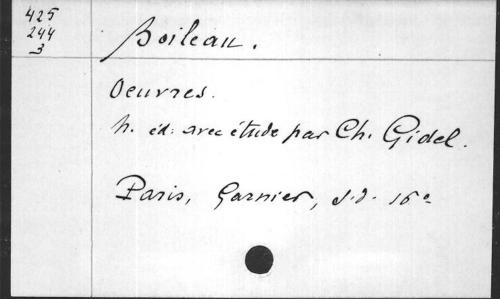 425
244
3
Boileau.
Oeuvres.
n. éd. avec étude par Ch. Gidel.
Paris, Garnier, s.d. 16º